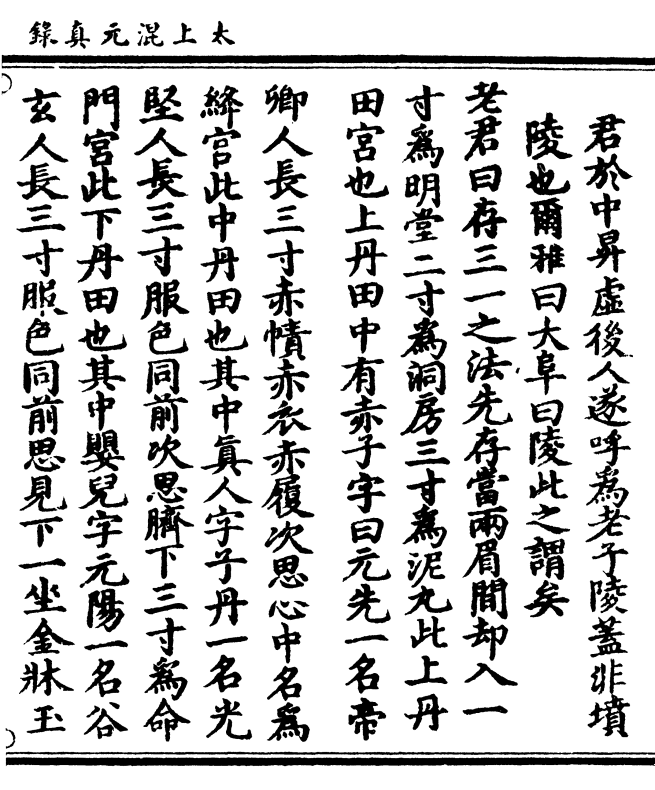 太上混元真錄
君於中昇虛後人遂呼為老子陵蓋非墳
陵也爾雅曰大阜曰陵此之謂矣
老君曰存三一之法先存當兩眉間却入一
寸為明堂二寸為洞房三寸為泥丸此上丹
田宮也上丹田中有赤子字曰元先一名帝
卿人長三寸赤幘赤衣赤履次思心中名為
絳宮此中丹田也其中真人字子丹一名光
堅人長三寸服色同前次思臍下三寸為命
門宮此下丹田也其中嬰兒字元陽一名谷
玄人長三寸服色同前思見下一坐金牀玉